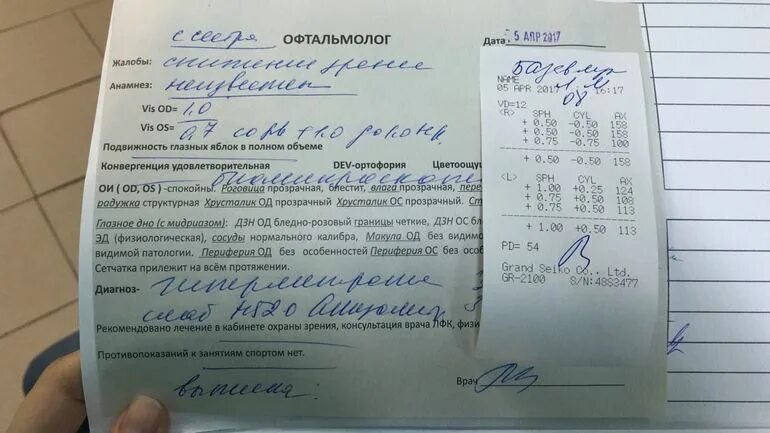 с сестра ОФТАЛЬМОЛОГ Дата 5 АПР 2017
Жалобы: снижение зрение
Анамнез: неизвестен
Vis OD= 1,0
Vis OS= 0,7
Подвижность глазных яблок в полном объеме
Конвергенция удовлетворительная DEV-ортофория Цветоощу
ОИ ( OD, OS ) -спокойны. Роговица прозрачная, блестит, влага прозрачная, пере
радужка структурная Хрусталик ОД прозрачный Хрусталик ОС прозрачный.
Глазное дно (с мидриазом): ДЗН ОД бледно-розовый границы четкие, ДЗН ОС бл
ЭД (физиологическая), сосуды нормального калибра, Макула ОД без видимо
видимой патологии. Периферия ОД без особенностей Периферия ОС без особен
Сетчатка прилежит на всём протяжении.
Диагноз- гиперметропия
слаб H520
Рекомендовано лечение в кабинете охраны зрения, консультация врача ЛФК, физи
Противопоказаний к занятиям спортом нет.
Врач
NAME
05 APR 201 16:17
VD=12
<R> SPH CYL AX
+ 0.50 -0.50 158
+ 0.50 -0.50 158
+ 0.75 -0.75 100
+ 0.50 -0.50 158
<L> SPH CYL AX
+ 1.00 +0.25 124
+ 0.75 +0.50 108
+ 0.75 +0.50 113
+ 1.00 +0.50 113
PD= 54
Grand Seiko Co., Ltd.
GR-2100 S/N:48S3477